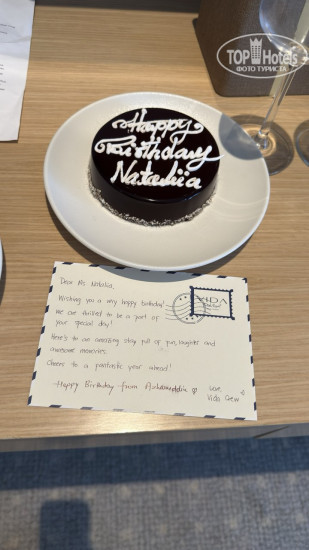 TOPHotels
ФОТО ТУРИСТА
Happy
Birthday
Nataliia
Dear Ms. Natalia,
Wishing you a very happy birthday!
We are thrilled to be a part of
your special day!
Here's to an amazing stay full of fun, laughter and
awesome memories.
Cheers to a fantastic year ahead!
Happy Birthday from
Love,
Vida Crew
VIDA